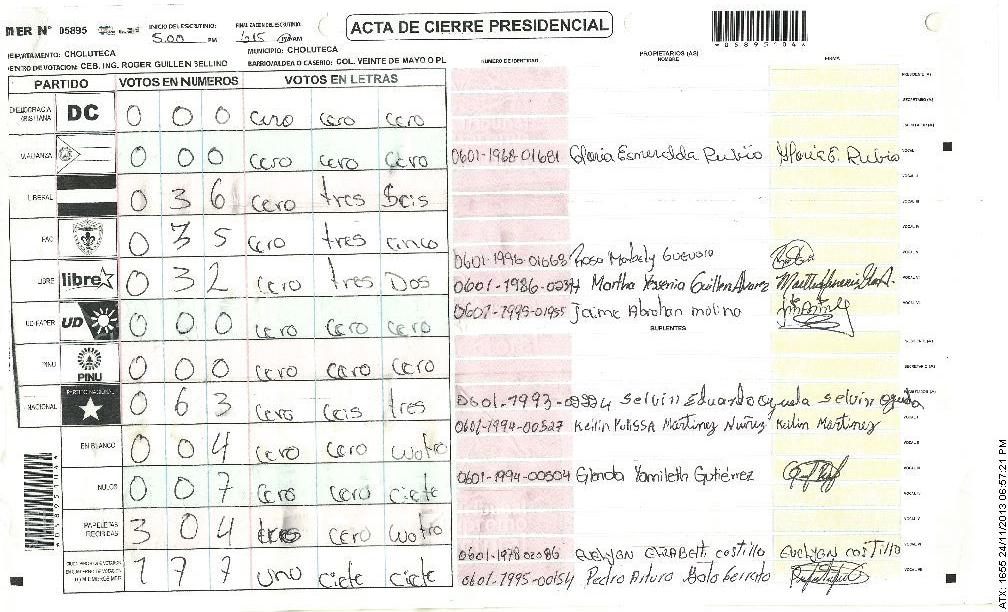 MER N° 05895
INICIO DEL ESCRUTINIO:
5:00 PM
FINALIZACIÓN DEL ESCRUTINIO:
6:15
ACTA DE CIERRE PRESIDENCIAL
DEPARTAMENTO: CHOLUTECA
MUNICIPIO: CHOLUTECA
CENTRO DE VOTACION: CEB. ING. ROGER GUILLEN SELLINO
BARRIO/ALDEA O CASERIO: COL. VEINTE DE MAYO O PL
PARTIDO VOTOS EN NUMEROS VOTOS EN LETRAS
NUMERO DE IDENTIDAD
PROPIETARIOS (AS)
NOMBRE
FIRMA
DEMOCRACIA CRISTIANA DC 0 0 0 cero cero cero
M.ALIANZA 0 0 0 cero cero cero
0601-1968-01681 Gloria Esmeralda Rubio Gloria E. Rubio
LIBERAL 0 3 6 cero tres Seis
PAC 0 3 5 cero tres cinco
LIBRE libre 0 3 2 cero tres Dos
0601-1986-0234 Martha Yesenia Guillen Alvarez
UD-FAPER UD 0 0 0 cero cero cero
0601-1995-01955 Jaime Abrahan molino
SUPLENTES
PINU PINU 0 0 0 cero cero cero
NACIONAL PARTIDO NACIONAL 0 6 3 cero ceis tres
selvin Eduardo
0601-1994-00527 Keilin Martinez Nuñez Keilin Martinez
EN BLANCO 0 0 4 cero cero
NULOS 0 0 7 cero cero ciete
0601-1994-00504 Glenda Yamileth Gutiérrez
PAPELETAS RECIBIDAS 3 0 4 tres cero
0601-1978-02086 costillo
1 7 7 uno ciete ciete
0601-1995-00154 Pedro Arturo
ATX: 1655 24/11/2013 06:57:21 PM